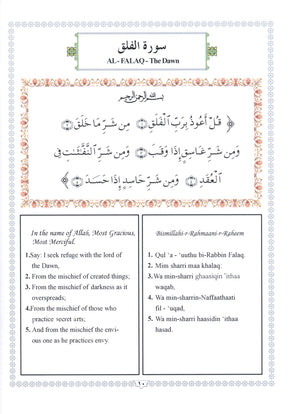 سورة الفلق
AL - FALAQ - The Dawn
بسم الله الرحمن الرحيم
﴿ قُلْ أَعُوذُ بِرَبِّ ٱلْفَلَقِ ۝١ مِن شَرِّ مَا خَلَقَ ۝٢
وَمِن شَرِّ غَاسِقٍ إِذَا وَقَبَ ۝٣ وَمِن شَرِّ ٱلنَّفَّٰثَٰتِ فِى
ٱلْعُقَدِ ۝٤ وَمِن شَرِّ حَاسِدٍ إِذَا حَسَدَ ۝٥ ﴾
In the name of Allah, Most Gracious,
Most Merciful.
1.Say: I seek refuge with the lord of
the Dawn,
2. From the mischief of created things;
3. From the mischief of darkness as it
overspreads;
4.From the mischief of those who
practice secret arts;
5. And from the mischief of the envi-
ous one as he practices envy.
Bismillahi-r-Rahmaani-r-Raheem
1. Qul 'a - 'uuthu bi-Rabbin Falaq.
2. Min sharri maa khalaq:
3. Wa min-sharri ghaasiqin 'ithaa
waqab,
4. Wa min-sharrin-Naffaathaati
fil - 'uqad,
5. Wa min-sharri haasidin 'ithaa
hasad.
٦٠